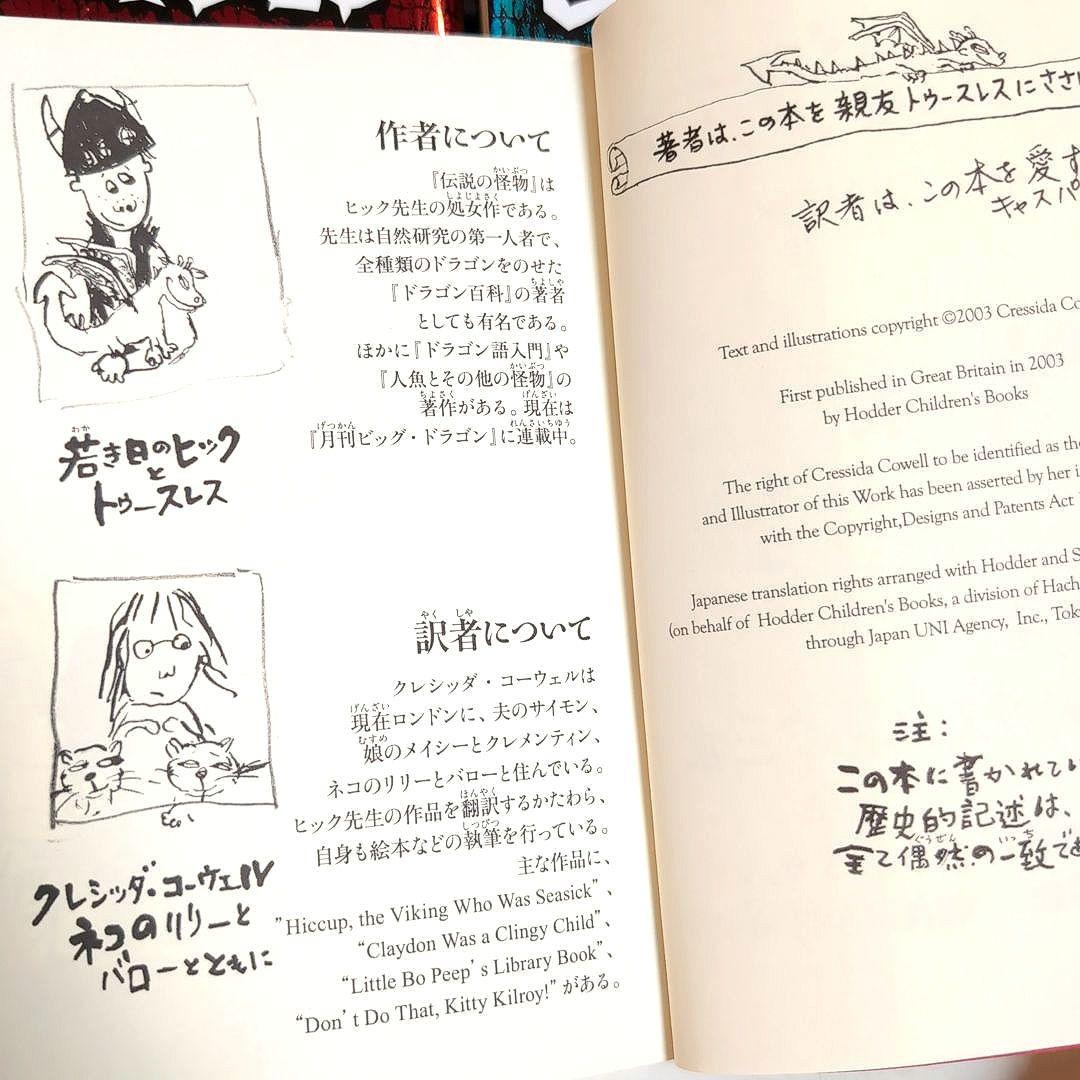 作者について
『伝説の怪物』は
ヒック先生の処女作である。
先生は自然研究の第一人者で、
全種類のドラゴンをのせた
『ドラゴン百科』の著者
としても有名である。
ほかに『ドラゴン語入門』や
『人魚とその他の怪物』の
著作がある。現在は
『月刊ビッグ・ドラゴン』に連載中。
若き日のヒック
と
トゥースレス
訳者について
クレシッダ・コーウェルは
現在ロンドンに、夫のサイモン、
娘のメイシーとクレメンティン、
ネコのリリーとバローと住んでいる。
ヒック先生の作品を翻訳するかたわら、
自身も絵本などの執筆を行っている。
主な作品に、
"Hiccup, the Viking Who Was Seasick"、
"Claydon Was a Clingy Child"、
"Little Bo Peep's Library Book"、
"Don't Do That, Kitty Kilroy!"がある。
クレシッダ・コーウェル
ネコのリリーと
バローとともに
著者は、この本を親友トゥースレスにささ
訳者は、この本を愛す
キャスパ
Text and illustrations copyright ©2003 Cressida Co
First published in Great Britain in 2003
by Hodder Children's Books
The right of Cressida Cowell to be identified as the
and Illustrator of this Work has been asserted by her i
with the Copyright,Designs and Patents Act
Japanese translation rights arranged with Hodder and S
(on behalf of Hodder Children's Books, a division of Hach
through Japan UNI Agency, Inc., Tok
注：
この本に書かれてい
歴史的記述は、
全て偶然の一致で